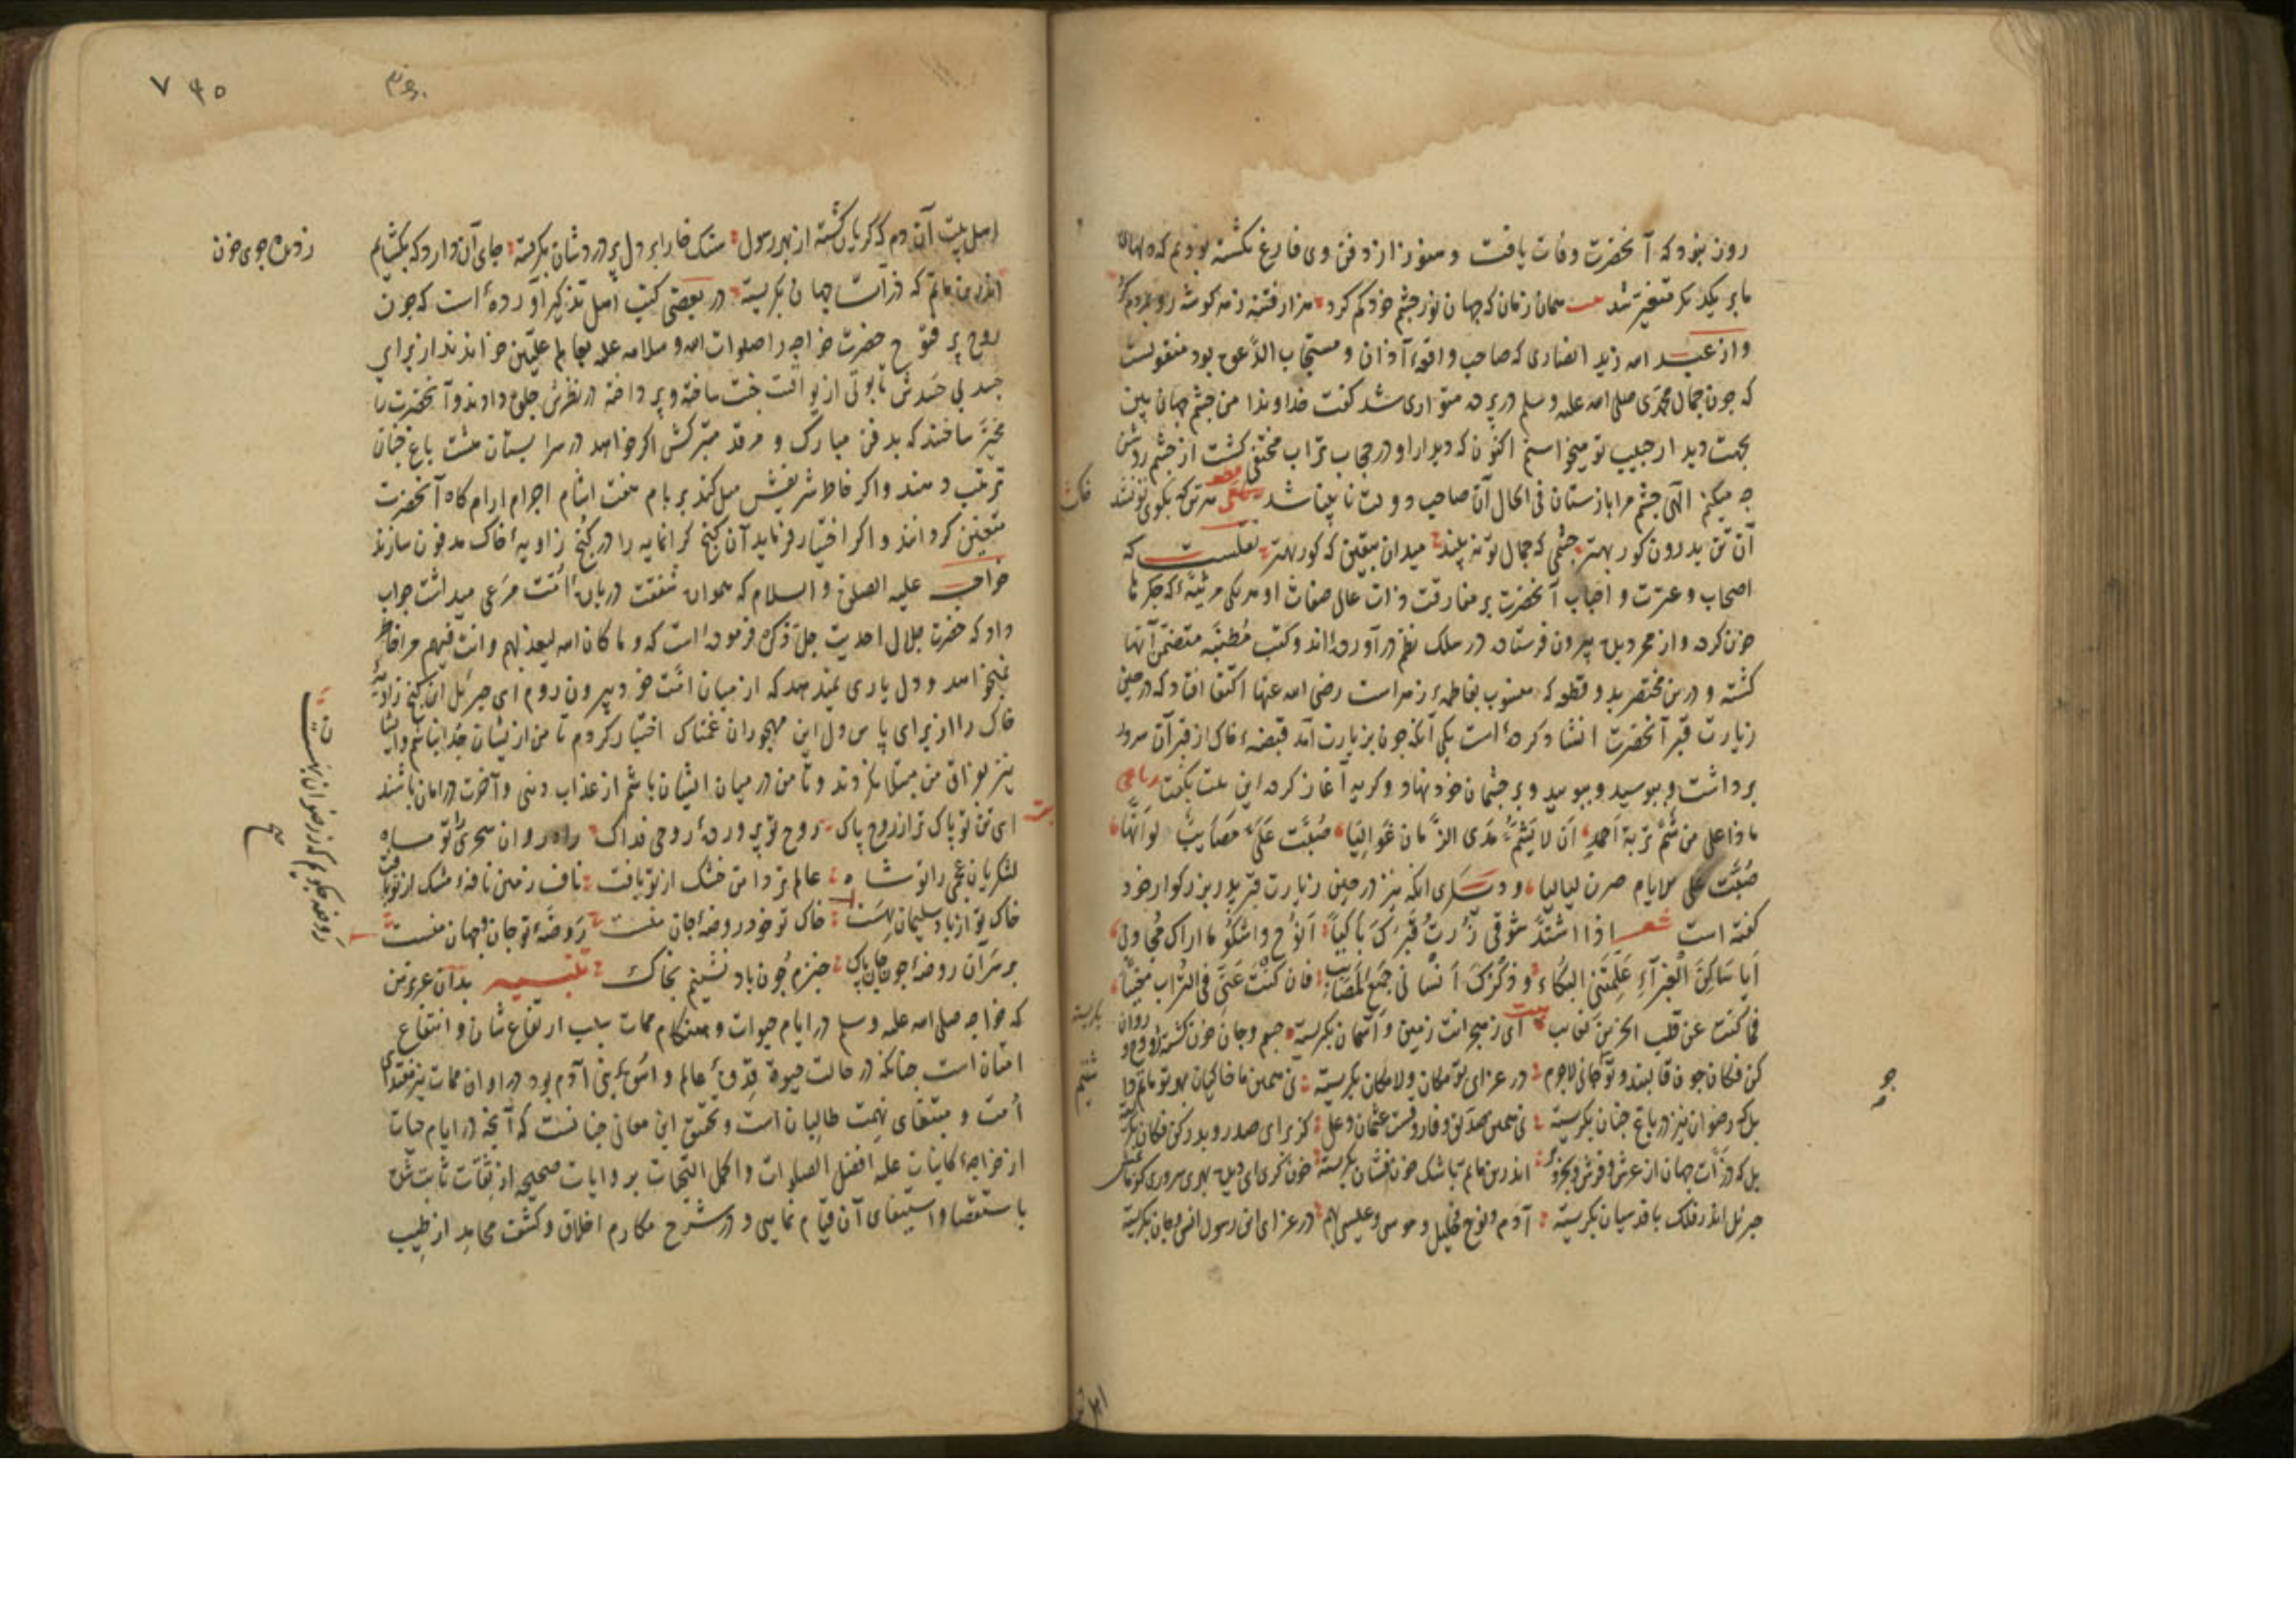 روز بنود که آنحضرت وفات یافت و هنوز از دفن وی فارغ نکشته بودیم که دلهای
ما بر یکدیکر متغیر شد همان زمان که جهان نور چشم خود کم کرد هزار فتنه ز هر کوشه رو بمردم کرد
و از عبد الله زید انصاری که صاحب واقعهٔ اذان و مستجاب الدعوه بود منقولست
که چون جمال محمدی صلی الله علیه وسلم در پرده متواری شد کفت خداوندا من چشم جهان بین
بجهت دیدار حبیب تو میخواستم اکنون که دیدار او در حجاب تراب مختفی کشت از چشم روشن
چه میکنم الهی چشم مرا بازستان فی الحال آن صاحب دولت نابینا شد هر تن که بکوی تو نشد خاک
آن تن بدرون کور بهتر چشمی که جمال تو نه بیند میدان بیقین که کور بهتر نقلست که
اصحاب و عترت و احباب آنحضرت بر مفارقت ذات عالی صفات او هر یکی مرثیهٔ که جکرها
خون کرده و از مجر دیده بیرون فرستاده در سلک نظم درآورده‌اند و کتب متضمن آنها
کشته و درین مختصر بدو قطعه که منسوب بفاطمهٔ زهراست رضی الله عنها اکتفا افتاد که در حین
زیارت قبر آنحضرت انشاد کرده است یکی آنکه چون بزیارت آمد قبضهٔ خاک از قبر آن سرور
برداشت و ببوسید و ببویید و بر چشمان خود نهاد و کریه آغاز کرده این بیت بکفت رباعی
ماذا علی من شم تربة احمد ان لا یشم مدی الزمان غوالیا صبت علی مصایب لو انها
صبت علی الایام صرن لیالیا و دیکری انکه نیز در حین زیارت قبر پدر بزرکوار خود
کفته است شعر اذا اشتد شوقی زرت قبرک باکیا انوح واشکو ما اراک مجاوبی
ایا ساکن الغبراء علمتنی البکاء و ذکرک انسانی جمیع المصایب فان کنت عنی فی التراب مغیبا
فما کنت عن قلب الحزین بغایب بیت ای ز هجرانت زمین و آسمان بکریسته جسم و جان خون کشته و روح و روان بکریسته
کن فکان چون قالبند و تو جانی لاجرم در عزای تو مکان و لامکان بکریسته نی همین ما خاکیان بهر تو ماتم داشتیم
بلکه رضوان نیز در باغ جنان بکریسته نی همین صدیق و فاروقست عثمان و علی کز برای صدر و بدر کن فکان بکریسته
بلکه ذرات جهان از عرش و فرش و بحر و بر اندرین ماتم باشک خون فشان بکریسته خون کری ای دیده بهر سروری کز ماتمش
جبرئیل اندر فلک با قدسیان بکریسته آدم و نوح و خلیل و موسی و عیسی بهم در عزای این رسول انس و جان بکریسته
اهل
۷۴۵
اهل بیت آن دم که کریان کشته از بهر رسول سنک خارا بر دل پر دردشان بکریسته جای آن دارد که بکشایم
ز دیده جوی خون
اندرین ماتم که ذرات جهان بکریسته در بعضی کتب اهل تذکیر آورده است که چون
روح پر فتوح حضرت خواجه را صلوات الله و سلامه علیه بعالم علیین خواندند از برای
جسد بی حسدش تابوتی از یواقیت جنت ساخته و پرداخته در نظرش جلوه دادند و آنحضرت را
مخیر ساختند که بدفن مبارک و مرقد متبرکش اکر خواهد در سرابستان هشت باغ جنان
ترتیب دهند و اکر خاطر شریفش میل کند بر بام هفت اجرام آرامکاه آنحضرت
متعین کردانند و اکر اختیار فرماید آن کنج کرانمایه را در کنج زاویهٔ خاک مدفون سازند
خواجه علیه الصلوة و السلام که همواره شفقت درباره امت مرعی میداشت جواب
داد که حضرت جلال احدیت جل ذکره فرموده است که و ما کان الله لیعذبهم وانت فیهم مرا خاطر
نمیخواهد و دل یاری نمیدهد که از میان امت خود بیرون روم ای جبرئیل این کنج زاویهٔ
خاک را از برای پاس دل این مهجوران غمناک اختیار کردم تا من از ایشان جدا نباشم و ایشان
نیز بفراق من مبتلا نکردند و تا من در میان ایشان باشم از عذاب دنیی و آخرت در امان باشند
بیت ای تن تو پاک تر از روح پاک روح تو پروردهٔ روحی فداک راهروان سحری را تو ماه
لشکریان عجمی را تو شاه عالم تر دامن خشک از تو یافت ناف زمین نافهٔ مشک از تو یافت
خاک تو از باد سلیمان بهست خاک تو خود روضهٔ جان منست روضهٔ تو جان و جهان منست
روضه چکویم که ز رضوان بهست
بر سر آن روضهٔ چون جان پاک خیزم چون باد نشینم بخاک تنبیه بدان عزیز من
که خواجه صلی الله علیه وسلم در ایام حیوات و هنکام ممات سبب ارتفاع شان و انتفاع
امتان است چنانکه در حالت حیوة قدوهٔ عالم و اسوهٔ بنی آدم بود در اوان ممات نیز مقتدای
امت و مبتغای نهمت طالبان است و تحقیق این معانی چنانست که آنچه در ایام حیات
از خواجهٔ کاینات علیه افضل الصلوات واکمل التحیات بروایات صحیحه از ثقات ثابت شده
باستقصا و استیفای آن قیام نمایی و در شرح مکارم اخلاق و کشف محامد از طیب